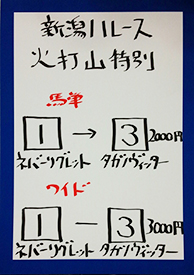 新潟11レース
火打山特別
馬単
1 → 3 2000円
ネバーリグレット タガノヴィッター
ワイド
1 - 3 3000円
ネバーリグレット タガノヴィッター